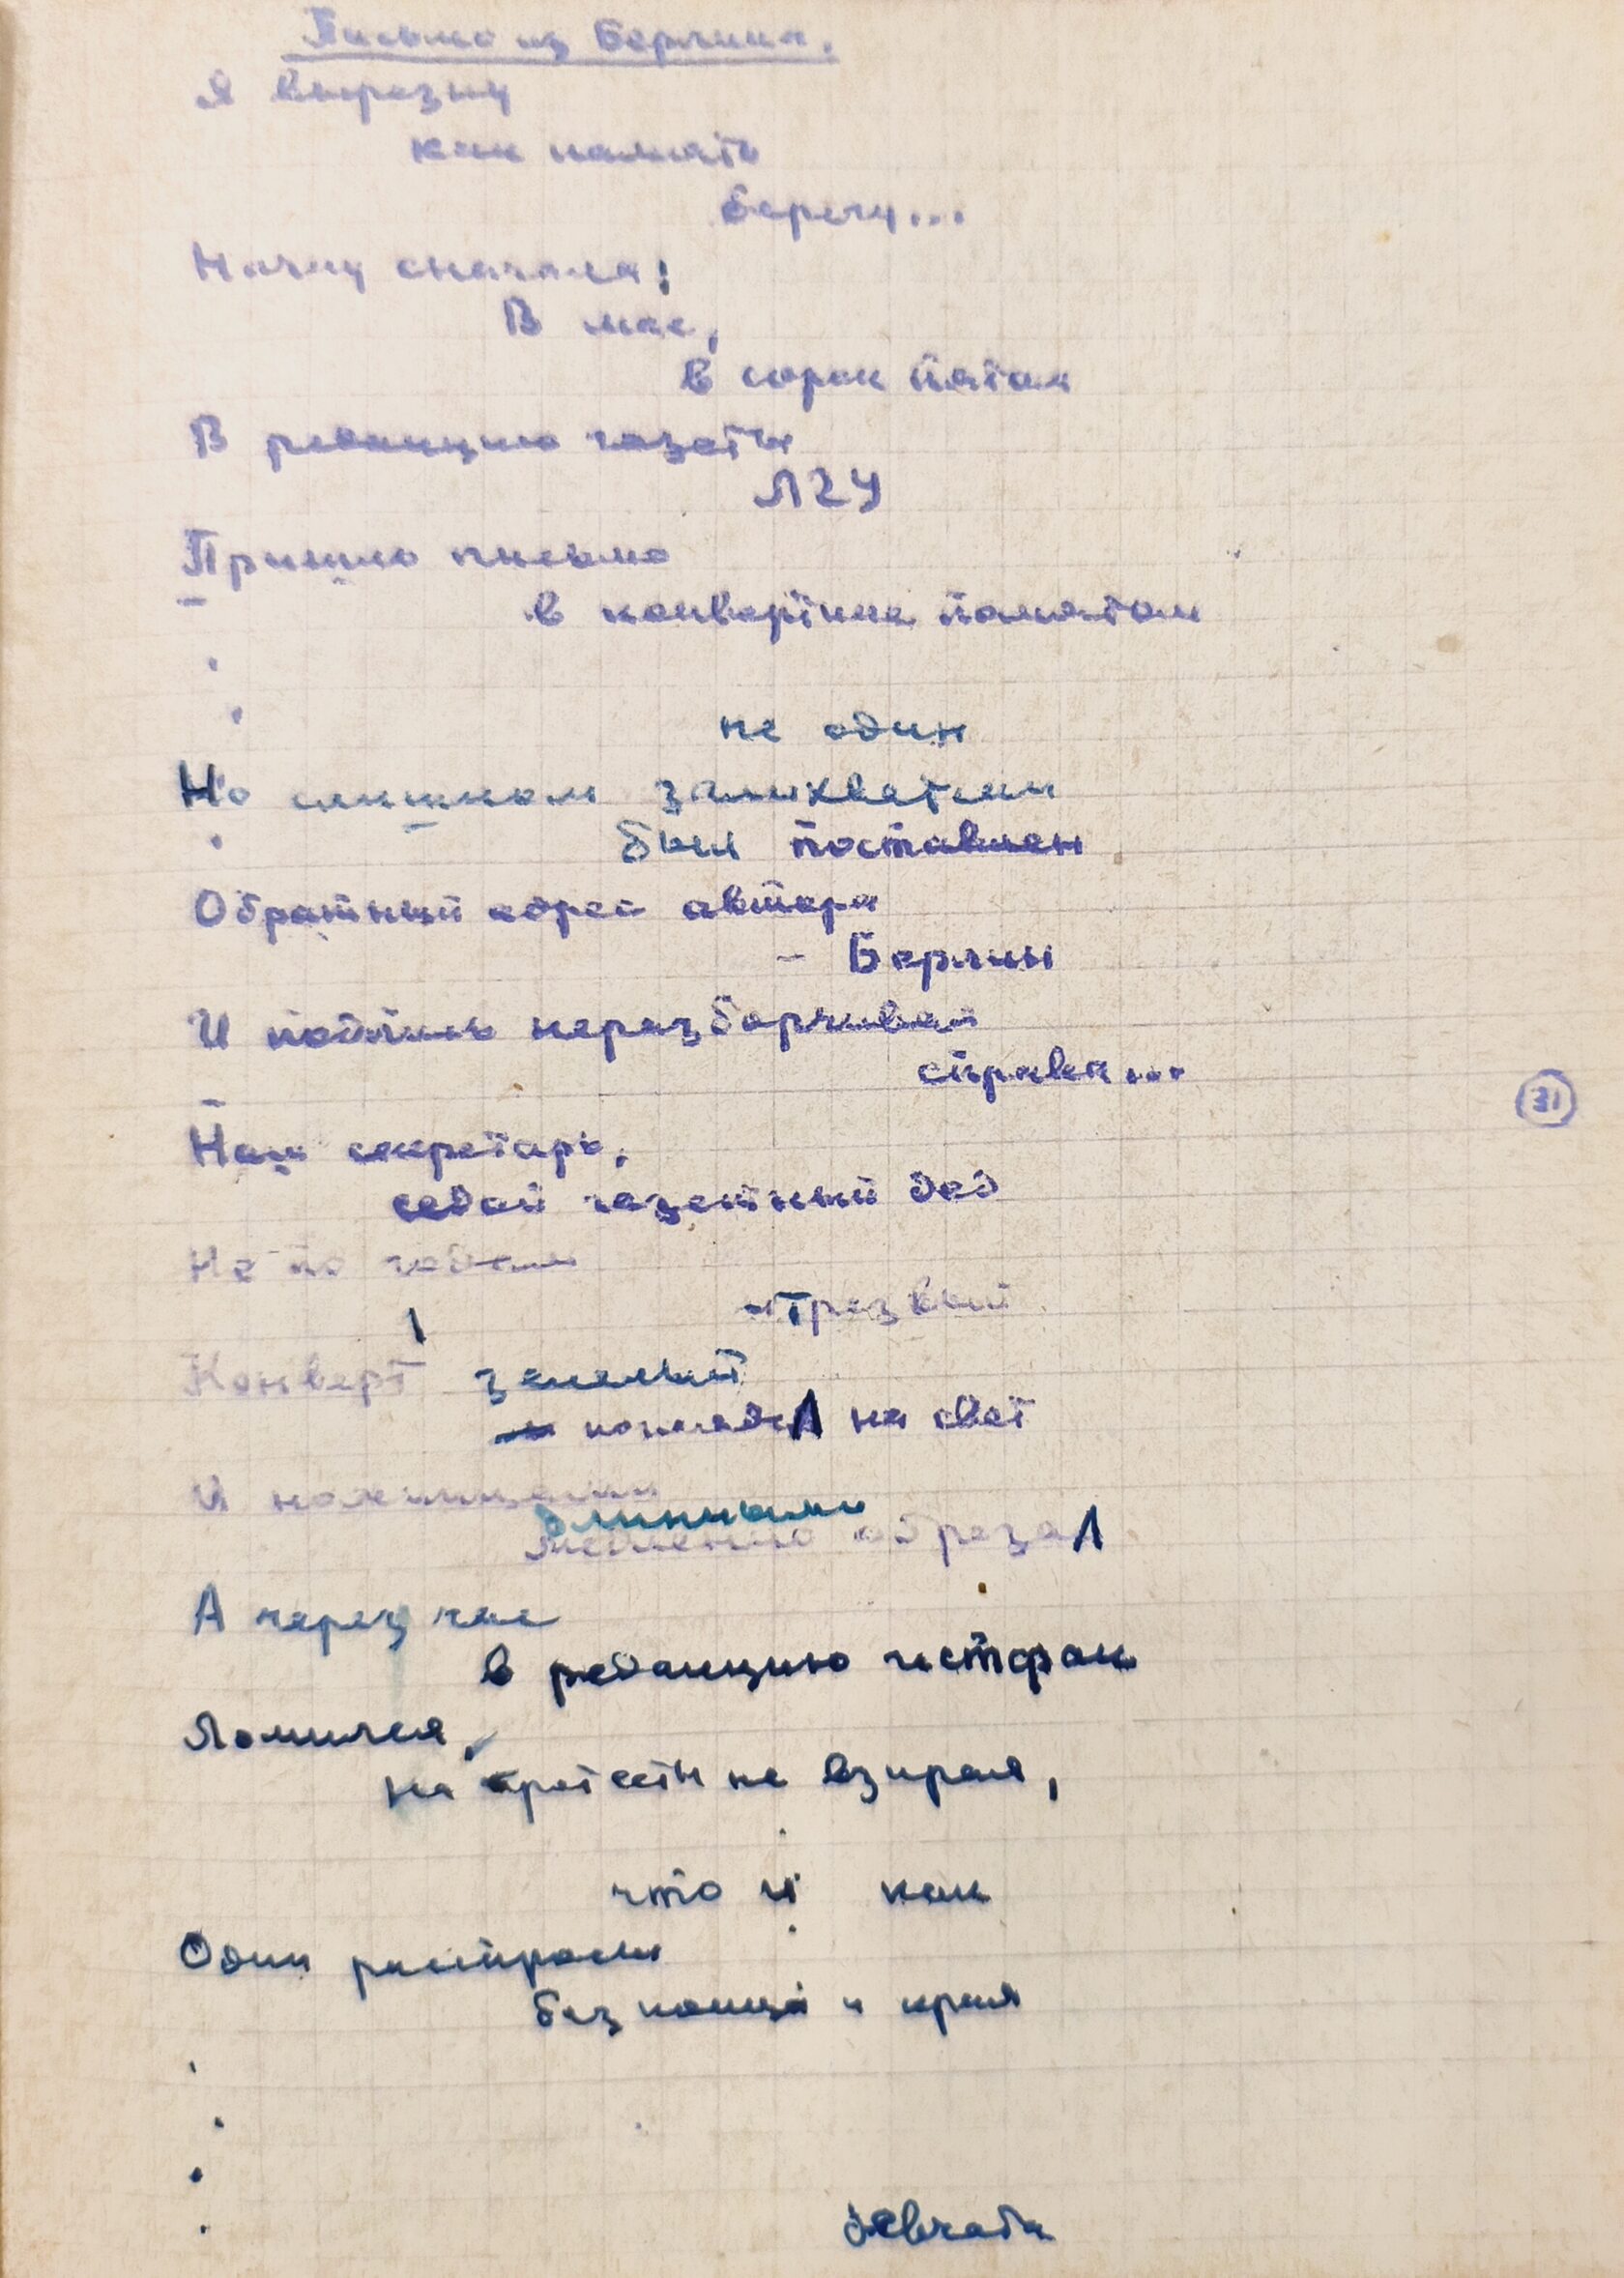 Письмо из Берлина.
Я вырезку
как память
берегу...
Начну сначала:
В мае,
в сорок пятом
В редакцию газеты
ЛГУ
Пришло письмо
в конвертике помятом
не один
Но слишком залихватски
был поставлен
Обратный адрес автора
- Берлин
И подпись неразборчивая
справа...
Наш секретарь,
седой газетный дед
Не по годам
трезвый
Конверт зеленый
поглядел на свет
И ножницами
длинными
обрезал
А через час
в редакцию истфак
Ломился,
на протесты не взирая,
что и как
Одни расспросы
без конца и края
девчата
31